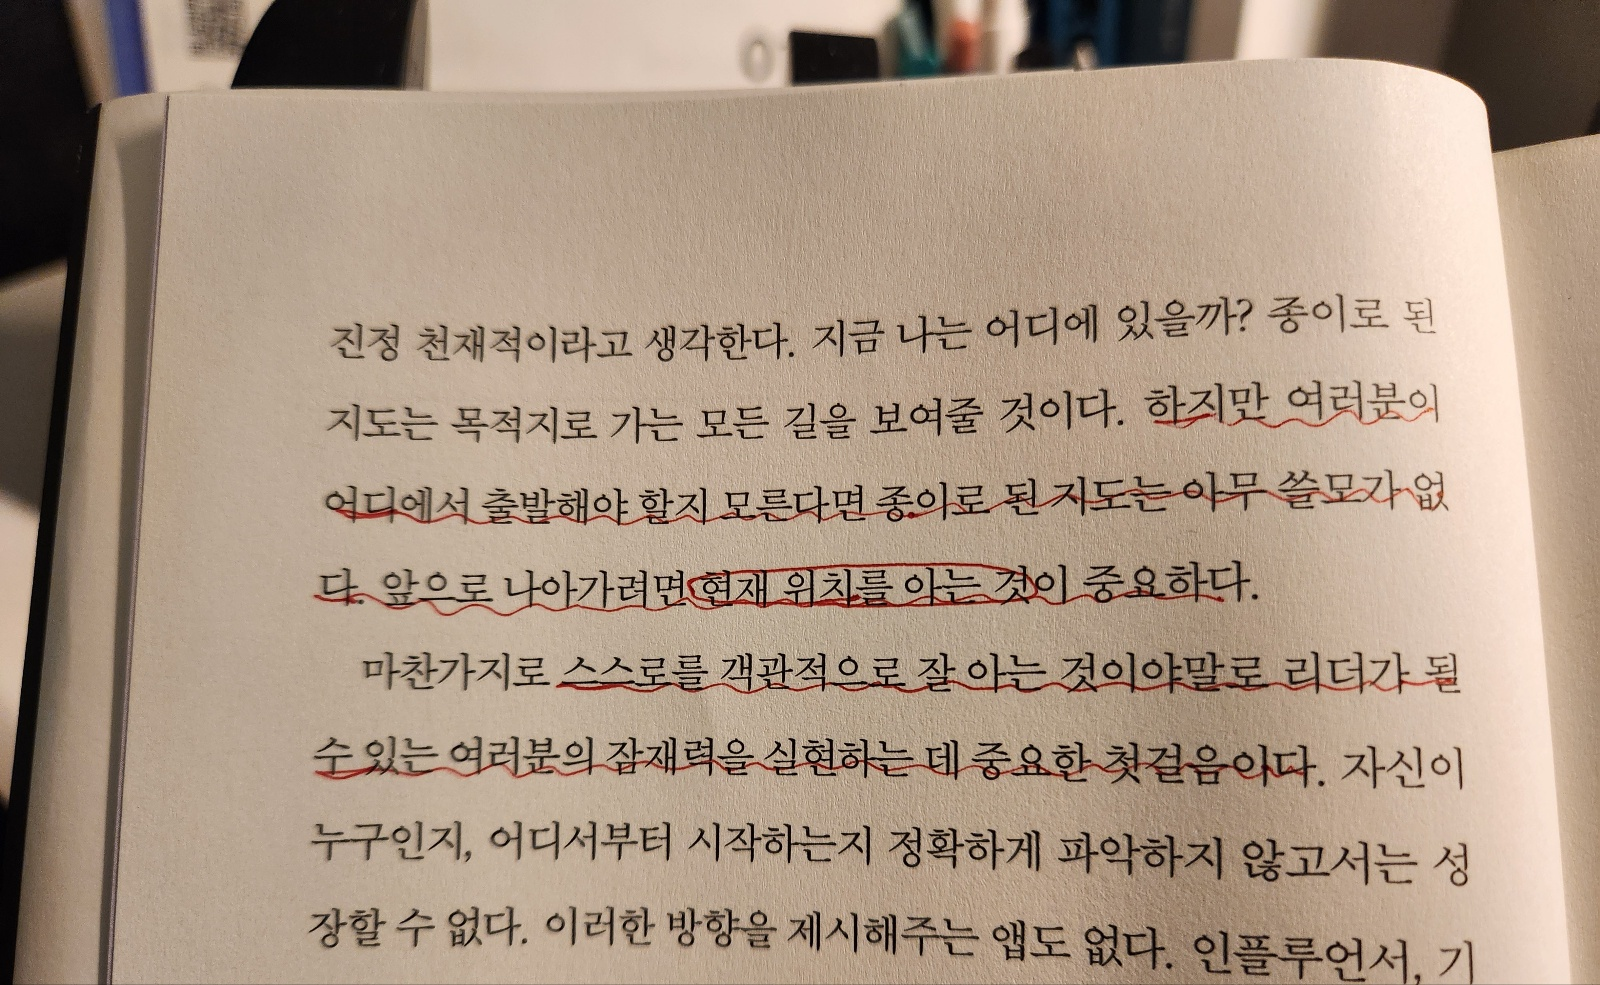 진정 천재적이라고 생각한다. 지금 나는 어디에 있을까? 종이로 된
지도는 목적지로 가는 모든 길을 보여줄 것이다. 하지만 여러분이
어디에서 출발해야 할지 모른다면 종이로 된 지도는 아무 쓸모가 없
다. 앞으로 나아가려면 현재 위치를 아는 것이 중요하다.
마찬가지로 스스로를 객관적으로 잘 아는 것이야말로 리더가 될
수 있는 여러분의 잠재력을 실현하는 데 중요한 첫걸음이다. 자신이
누구인지, 어디서부터 시작하는지 정확하게 파악하지 않고서는 성
장할 수 없다. 이러한 방향을 제시해주는 앱도 없다. 인플루언서, 기